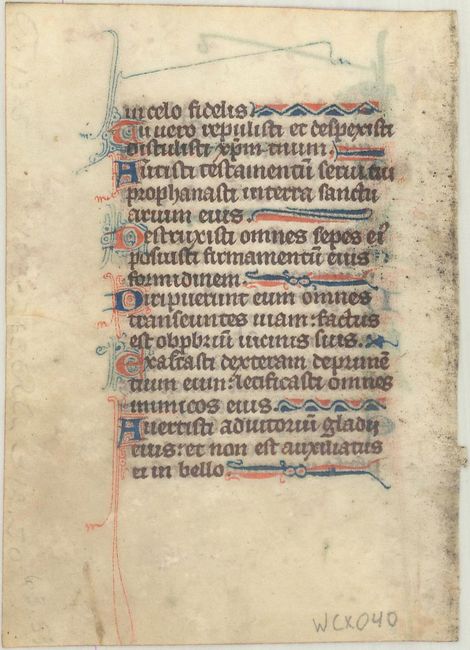 in celo fidelis
Tu vero repulisti et despexisti
distulisti xpm tuum.
Auertisti testamentū serui tui
prophanasti in terra sanctu
arium eius.
Destruxisti omnes sepes eiꝰ
posuisti firmamentū eius
formidinem.
Diripuerunt eum omnes
transeuntes uiam: factus
est obprobriū uicinis suis.
Exaltasti dexteram deprimē
tium eum: letificasti omnes
inimicos eius.
Auertisti adiutoriū gladii
eius: et non est auxiliatus
ei in bello
WCX040